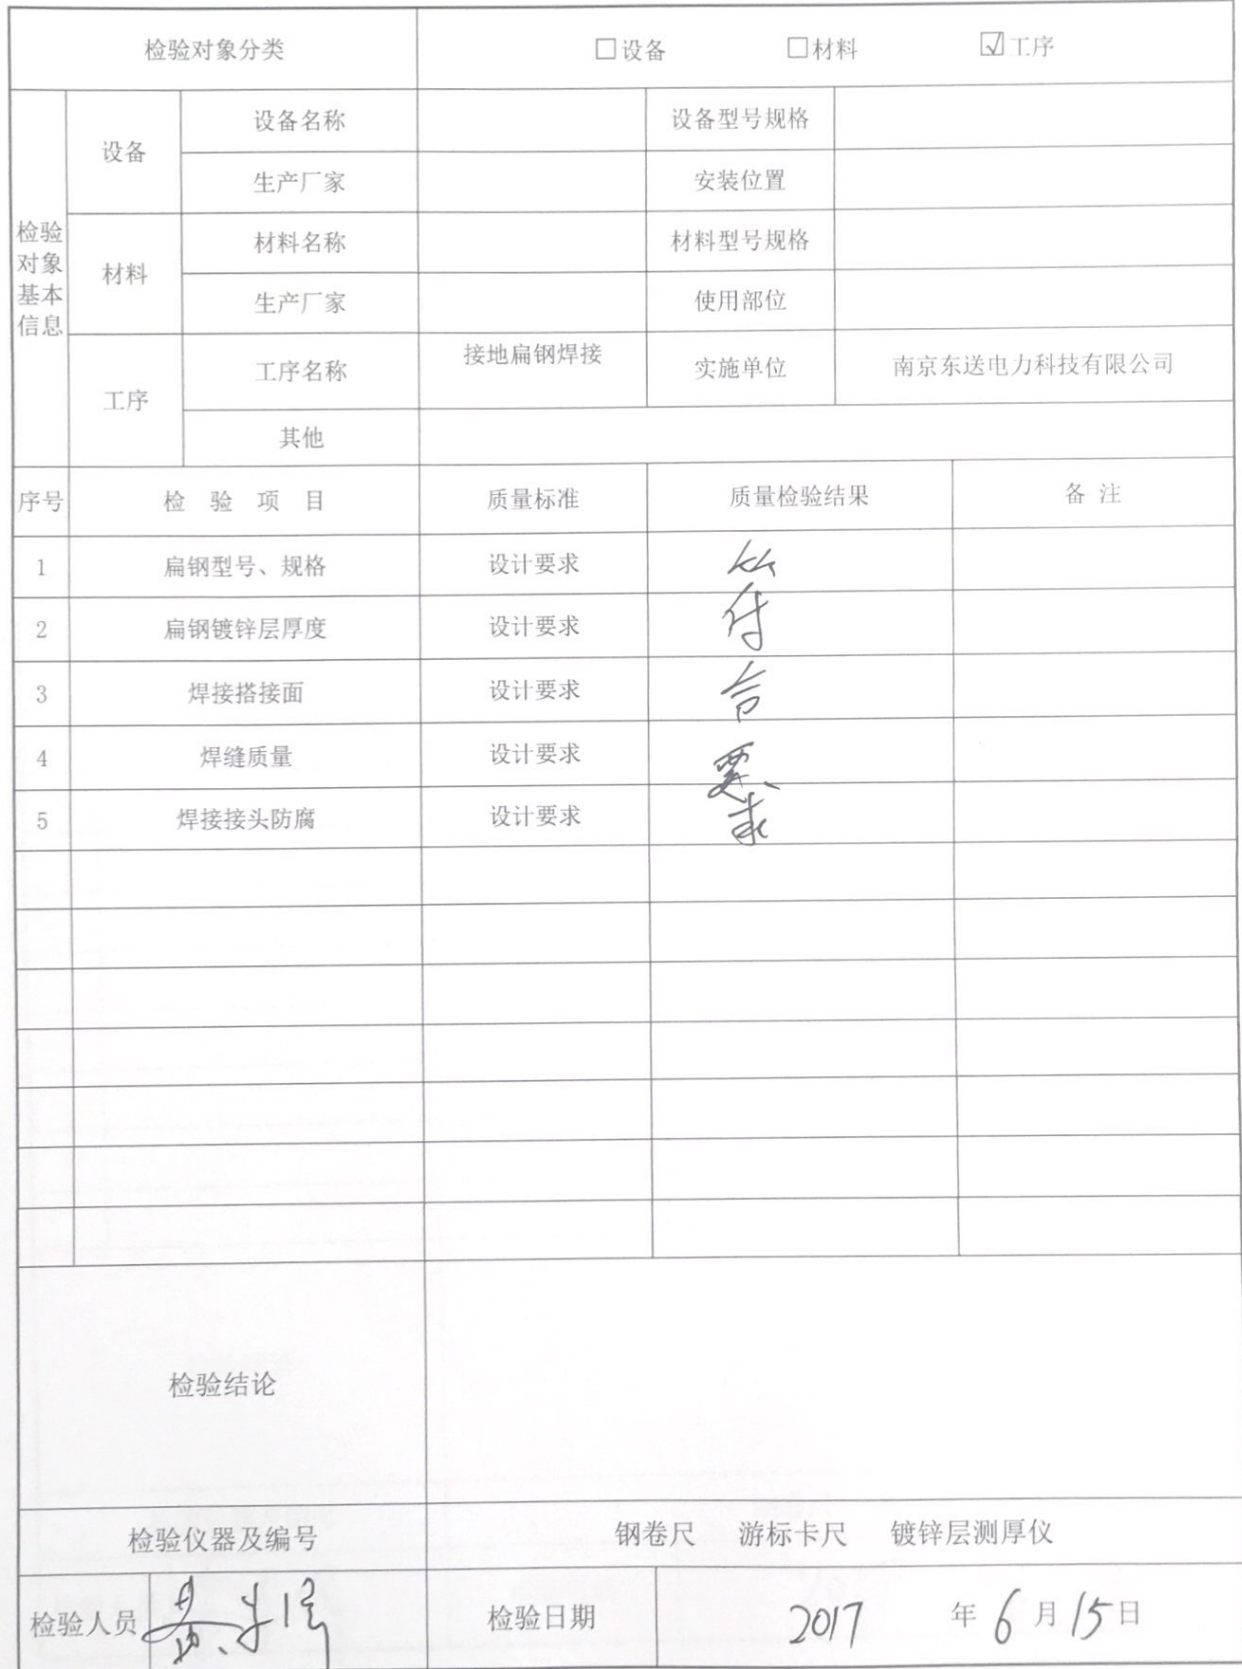 检验对象分类 □设备 □材料 ☑工序
检验对象基本信息
设备 设备名称 设备型号规格
生产厂家 安装位置
材料 材料名称 材料型号规格
生产厂家 使用部位
工序 工序名称 接地扁钢焊接 实施单位 南京东送电力科技有限公司
其他
序号 检验项目 质量标准 质量检验结果 备注
1 扁钢型号、规格 设计要求
2 扁钢镀锌层厚度 设计要求
3 焊接搭接面 设计要求
4 焊缝质量 设计要求
5 焊接接头防腐 设计要求
符合要求
检验结论
检验仪器及编号 钢卷尺 游标卡尺 镀锌层测厚仪
检验人员 检验日期 2017 年 6 月 15 日